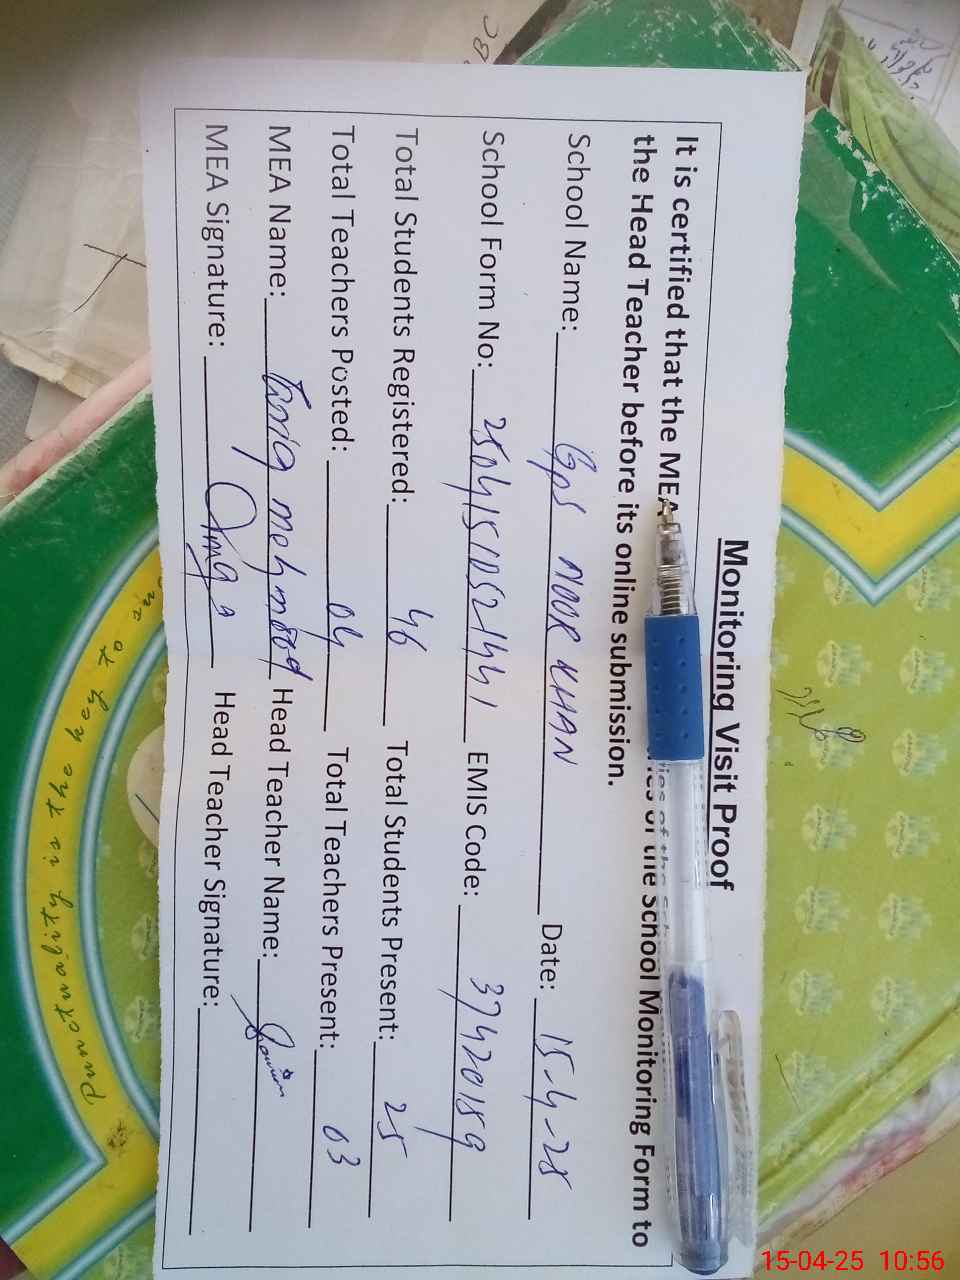 Monitoring Visit Proof
It is certified that the MEA of the School Monitoring Form to
the Head Teacher before its online submission.
School Name: Gps NOOR KHAN Date: 15-4-25
School Form No: 25041510521441 EMIS Code: 37420189
Total Students Registered: 46 Total Students Present: 25
Total Teachers Posted: 04 Total Teachers Present: 03
MEA Name: Tariq mehmood Head Teacher Name:
MEA Signature: Head Teacher Signature:
Punctuality is the key to
15-04-25 10:56